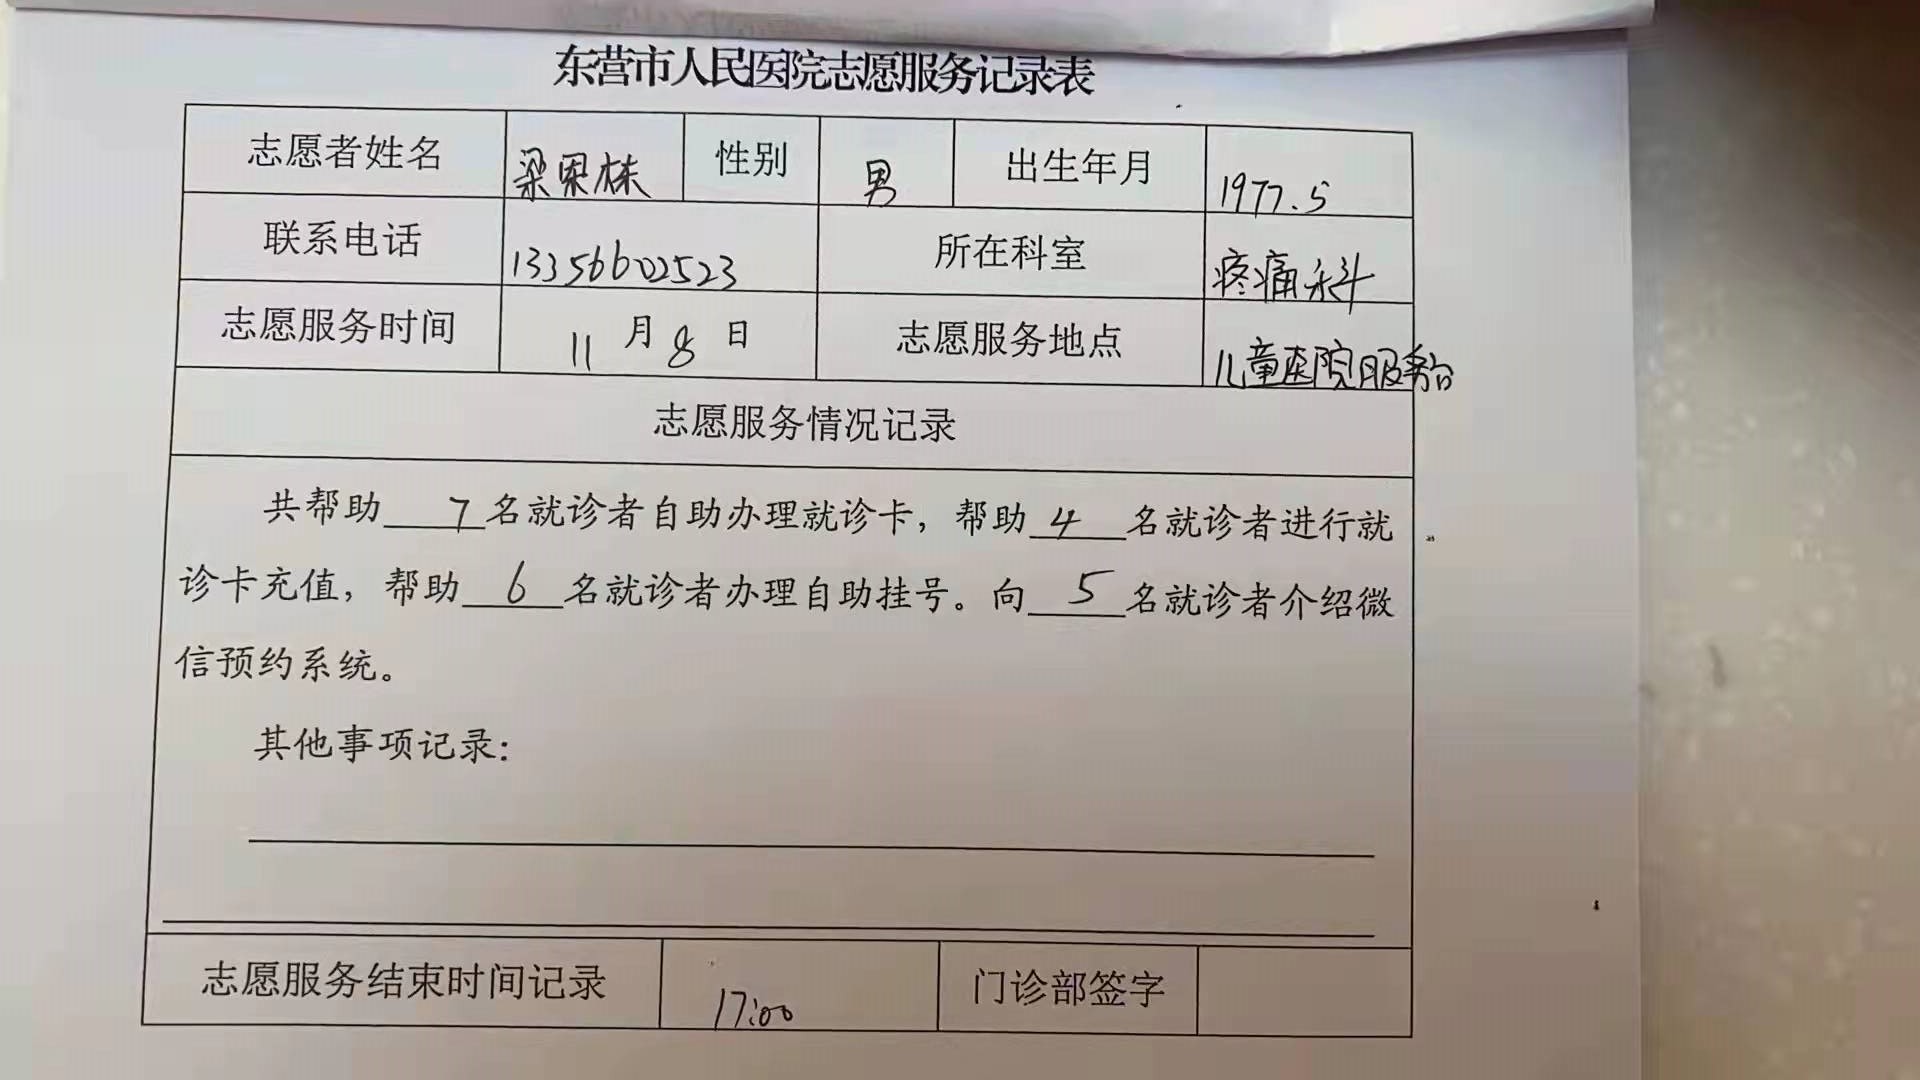 东营市人民医院志愿服务记录表
志愿者姓名 梁恩栋 性别 男 出生年月 1977.5
联系电话 13356602523 所在科室 疼痛科
志愿服务时间 11月8日 志愿服务地点 儿童医院服务台
志愿服务情况记录
共帮助7名就诊者自助办理就诊卡，帮助4名就诊者进行就
诊卡充值，帮助6名就诊者办理自助挂号。向5名就诊者介绍微
信预约系统。
其他事项记录：
志愿服务结束时间记录 17:00 门诊部签字